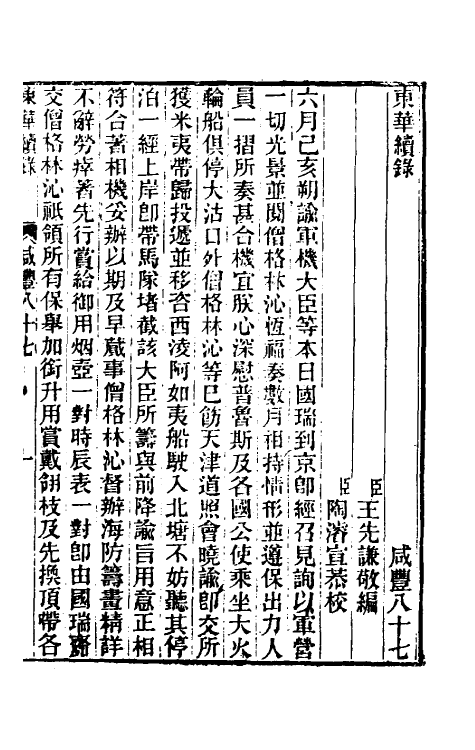 東華續錄　咸豐八十七
臣王先謙敬編
臣陶濬宣恭校
六月己亥朔諭軍機大臣等本日國瑞到京卽經召見詢以軍營
一切光景並閱僧格林沁恆福奏數月相持情形並遵保出力人
員一摺所奏甚合機宜朕心深慰普魯斯及各國公使乘坐大火
輪船俱停大沽口外僧格林沁等已飭天津道照會曉諭卽交所
獲米夷帶歸投遞並移咨西淩阿如夷船駛入北塘不妨聽其停
泊一經上岸卽帶馬隊堵截該大臣所籌與前降諭旨用意正相
符合著相機妥辦以期及早蕆事僧格林沁督辦海防籌畫精詳
不辭勞瘁著先行賞給御用烟壺一對時辰表一對卽由國瑞齎
交僧格林沁祇領所有保舉加銜升用賞戴翎枝及先換頂帶各
東華續錄　咸豐八十七　一